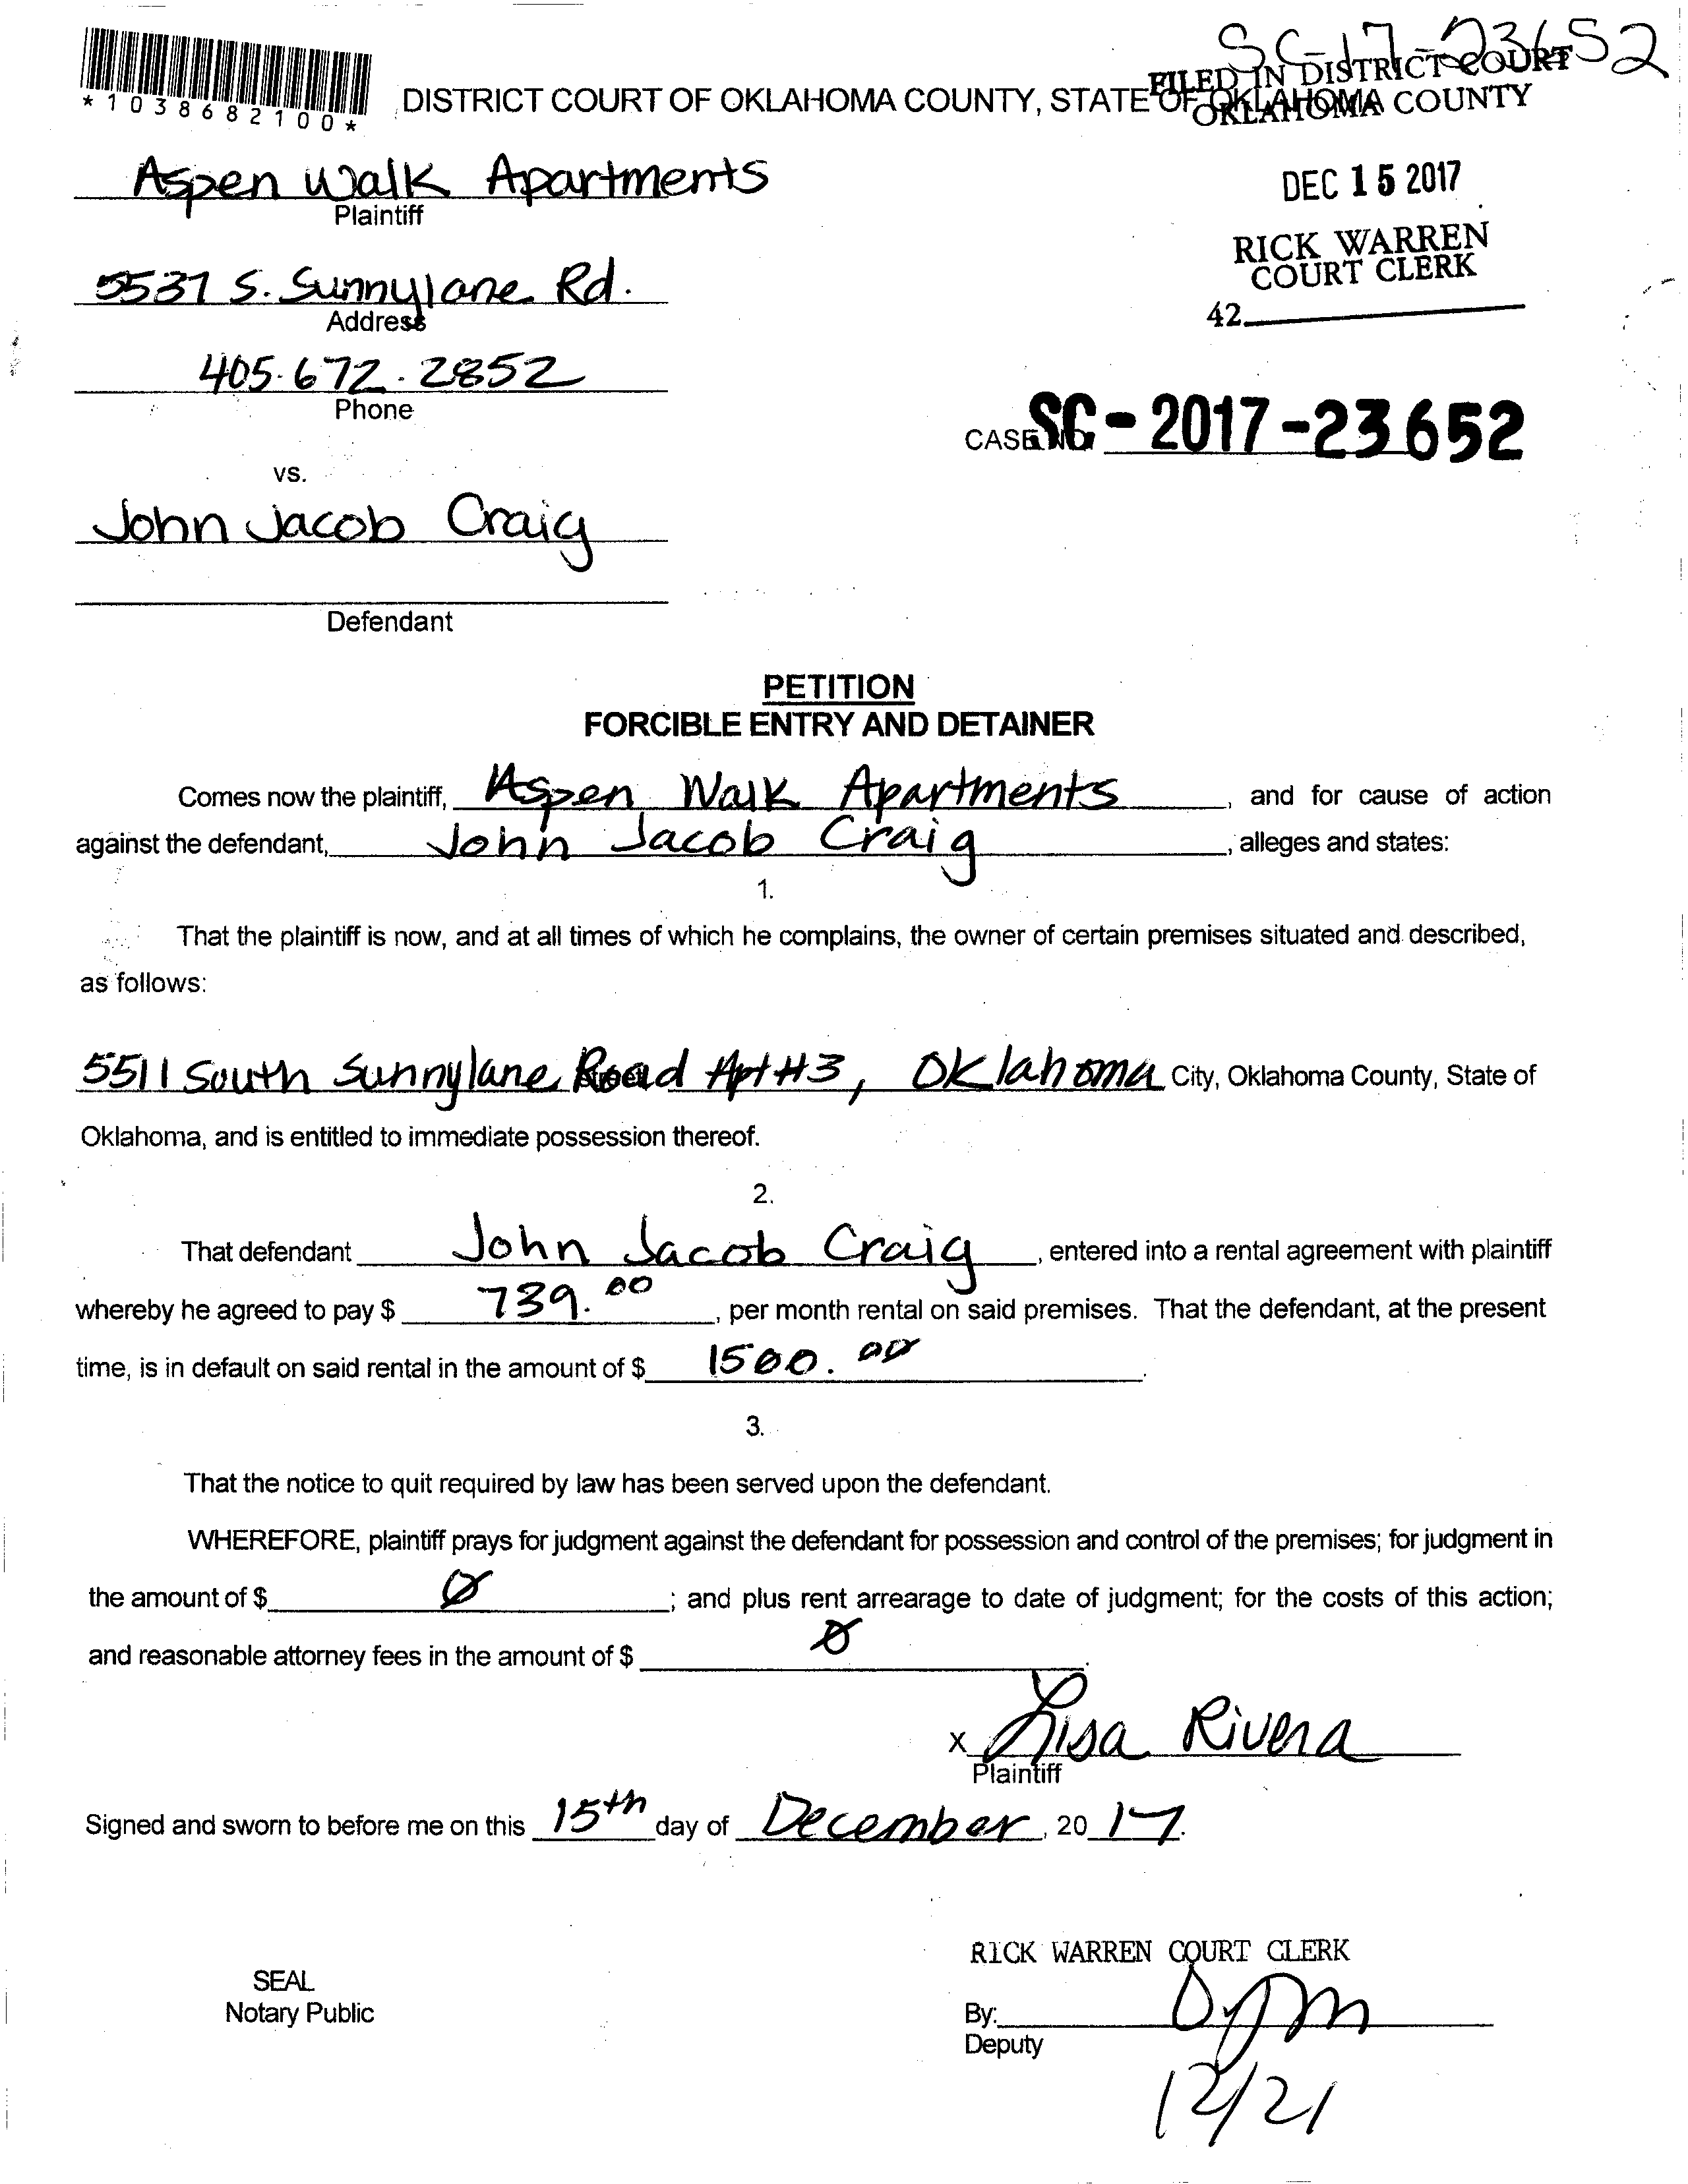 SC-17-23652
FILED IN DISTRICT COURT
OKLAHOMA COUNTY
*1038682100*
DISTRICT COURT OF OKLAHOMA COUNTY, STATE OF OKLAHOMA
Aspen Walk Apartments
Plaintiff
DEC 15 2017
RICK WARREN
COURT CLERK
42
5537 S. Sunnylane Rd.
Address
405.672.2852
Phone
CASE NO. SC-2017-23652
vs.
John Jacob Craig
Defendant
PETITION
FORCIBLE ENTRY AND DETAINER
Comes now the plaintiff, Aspen Walk Apartments, and for cause of action
against the defendant, John Jacob Craig, alleges and states:
1.
That the plaintiff is now, and at all times of which he complains, the owner of certain premises situated and described,
as follows:
5511 South Sunnylane Road Apt #3, Oklahoma City, Oklahoma County, State of
Oklahoma, and is entitled to immediate possession thereof.
2.
That defendant John Jacob Craig, entered into a rental agreement with plaintiff
whereby he agreed to pay $ 739.00, per month rental on said premises. That the defendant, at the present
time, is in default on said rental in the amount of $ 1500.00.
3.
That the notice to quit required by law has been served upon the defendant.
WHEREFORE, plaintiff prays for judgment against the defendant for possession and control of the premises; for judgment in
the amount of $ Ø; and plus rent arrearage to date of judgment; for the costs of this action;
and reasonable attorney fees in the amount of $ Ø.
X Lisa Rivera
Plaintiff
Signed and sworn to before me on this 15th day of December, 2017.
RICK WARREN COURT CLERK
SEAL
Notary Public
By:
Deputy
12/21